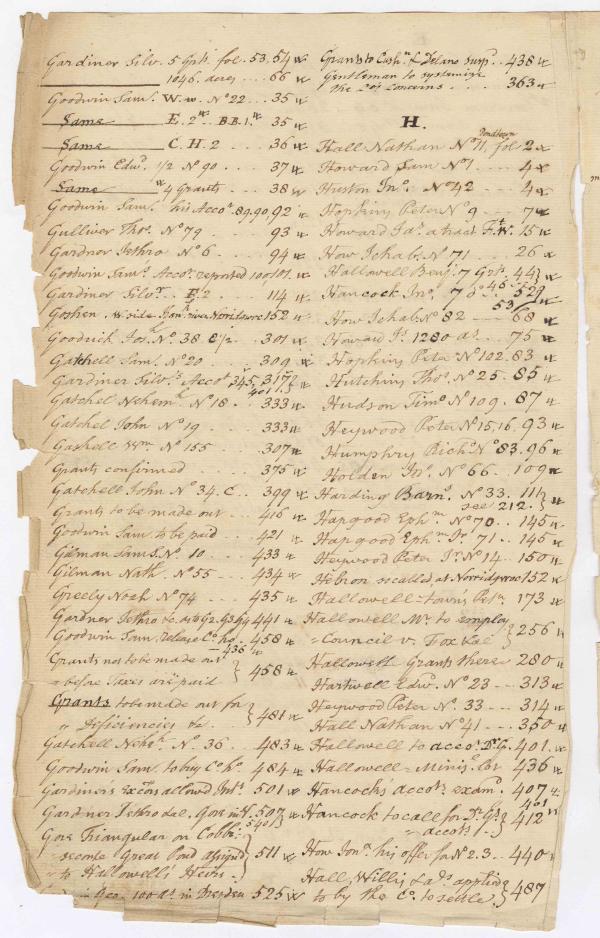 Gardiner Silv. 5 Grts. fol. 53, 54
1046. acres ... 66
Goodwin Saml. W. w. No 22 ... 35
Same E. 2 B.B. 1 35
Same C. H. 2 36
Goodwin Edwd. 1/2 No 90 .. 37
Same 4 Grants .. 38
Goodwin Saml. his Accot. 89, 90, 92
Gulliver Thos. No 79 .. 93
Gardner Jethro No 6 .. 94
Goodwin Saml. Accot. reported 100, 101
Gardiner Silvr. E. 2 114
Goshen W side Norridgwoc 152
Goodrich Jos. No. 38 E 1/2 .. 301
Gatchell Saml. No 20 .. 309
Gardiner Silvrs. Accot. 345, 347
401
Gatchel Nehemh. No 18 .. 333
Gatchel John No 19 .. 333
Gaskell Wm. No 155 307
Grants confirmed .. 375
Gatchell John No 34. C .. 399
Grants to be made out .. 416
Goodwin Sam. to be paid .. 421
Gilman Saml. S. No. 10 .. 433
Gilman Nath. No 55 ... 434
Greely Noah No 74 ... 435
Gardner Jethro &c. 441
Goodwin Sam. release 458
436
Grants not to be made out
before Taxes are paid } 458
Grants to be made out for
Deficiencies &c. } 481
Gatchell Nehh. No. 36 .. 483
Goodwin Sam. to buy Co. ho. 484
Gardiners Excors. allowed Intt. 501
Gardner Jethro del. Gore in 507
540
Gore Triangular on Cobbs.
Great Pond assigned
to Hallowell's Heirs } 511
Geo. 100 as. in Dresden 525
Grants to Cushn. & Delano Surp. .. 438
Gentleman to systemize
the Cos. concerns ... 363
H.
Hall Nathan No 71, fol 2
Howard Sam No 1 .. 4
Huston Jno. No 42 .. 4
Hopkins Peter No 9 .. 7
Howard Jas. a tract Ft. W. 15
How Ichab. No 71 .. 26
Hallowell Benj. 7 Grts. 44
Hancock Jno. 7 do. 46 52
53
How Ichab. No 82 .. 68
Howard Js. 1280 as. .. 75
Hopkins Peter No 102. 83
Hutchins Thos. No 25. 85
Hudson Timo. No 109. 87
Heywood Peter No 15, 16. 93
Humphry Richd. No 83. 96
Holden Jno. No 66. 109
Harding Barns. No 33. 111
see 212.
Hapgood Ephm. No 70 .. 145
Hapgood Ephm. Jr. 71 .. 145
Heywood Peter Jr. No 14. 150
Hebron so called, at Norridgwoc 152
Hallowell town's Petn. 173
Hallowell Mr. to employ
Council v. Fox &al } 256
Hallowell Grants there 280
Hartwell Edwd. No 23 .. 313
Heywood Peter No. 33 .. 314
Hall Nathan No 41 .. 350
Hallowell to accot. Dr. G. 401
Hallowell Minis. Lot 436
Hancock's accots. exam. 407
401
Hancock to call for Dr. Gs.
accots. } 412
How Jona. his offer for No 2. 3 .. 440
Hall, Willis & als. applied
to by the Co. to settle } 487